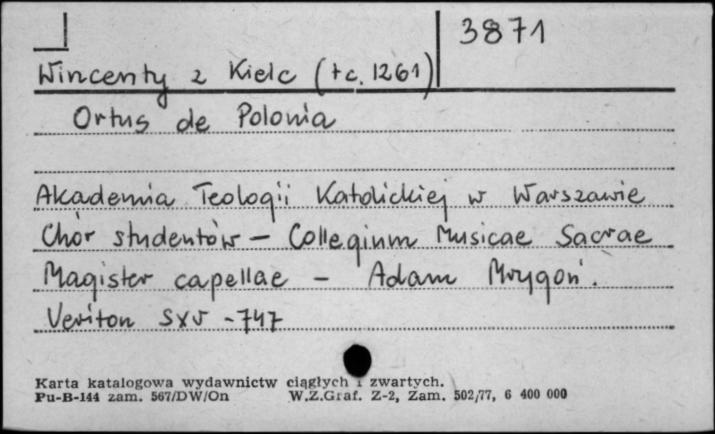 3871
Wincenty z Kielc (†c. 1261)
Ortus de Polonia
Akademia Teologii Katolickiej w Warszawie
Chór studentów – Collegium Musicae Sacrae
Magister capellae – Adam Mrygoń.
Veriton SXV -747
Karta katalogowa wydawnictw ciągłych i zwartych.
Pu-B-144 zam. 567/DW/On W.Z.Graf. Z-2, Zam. 502/77, 6 400 000